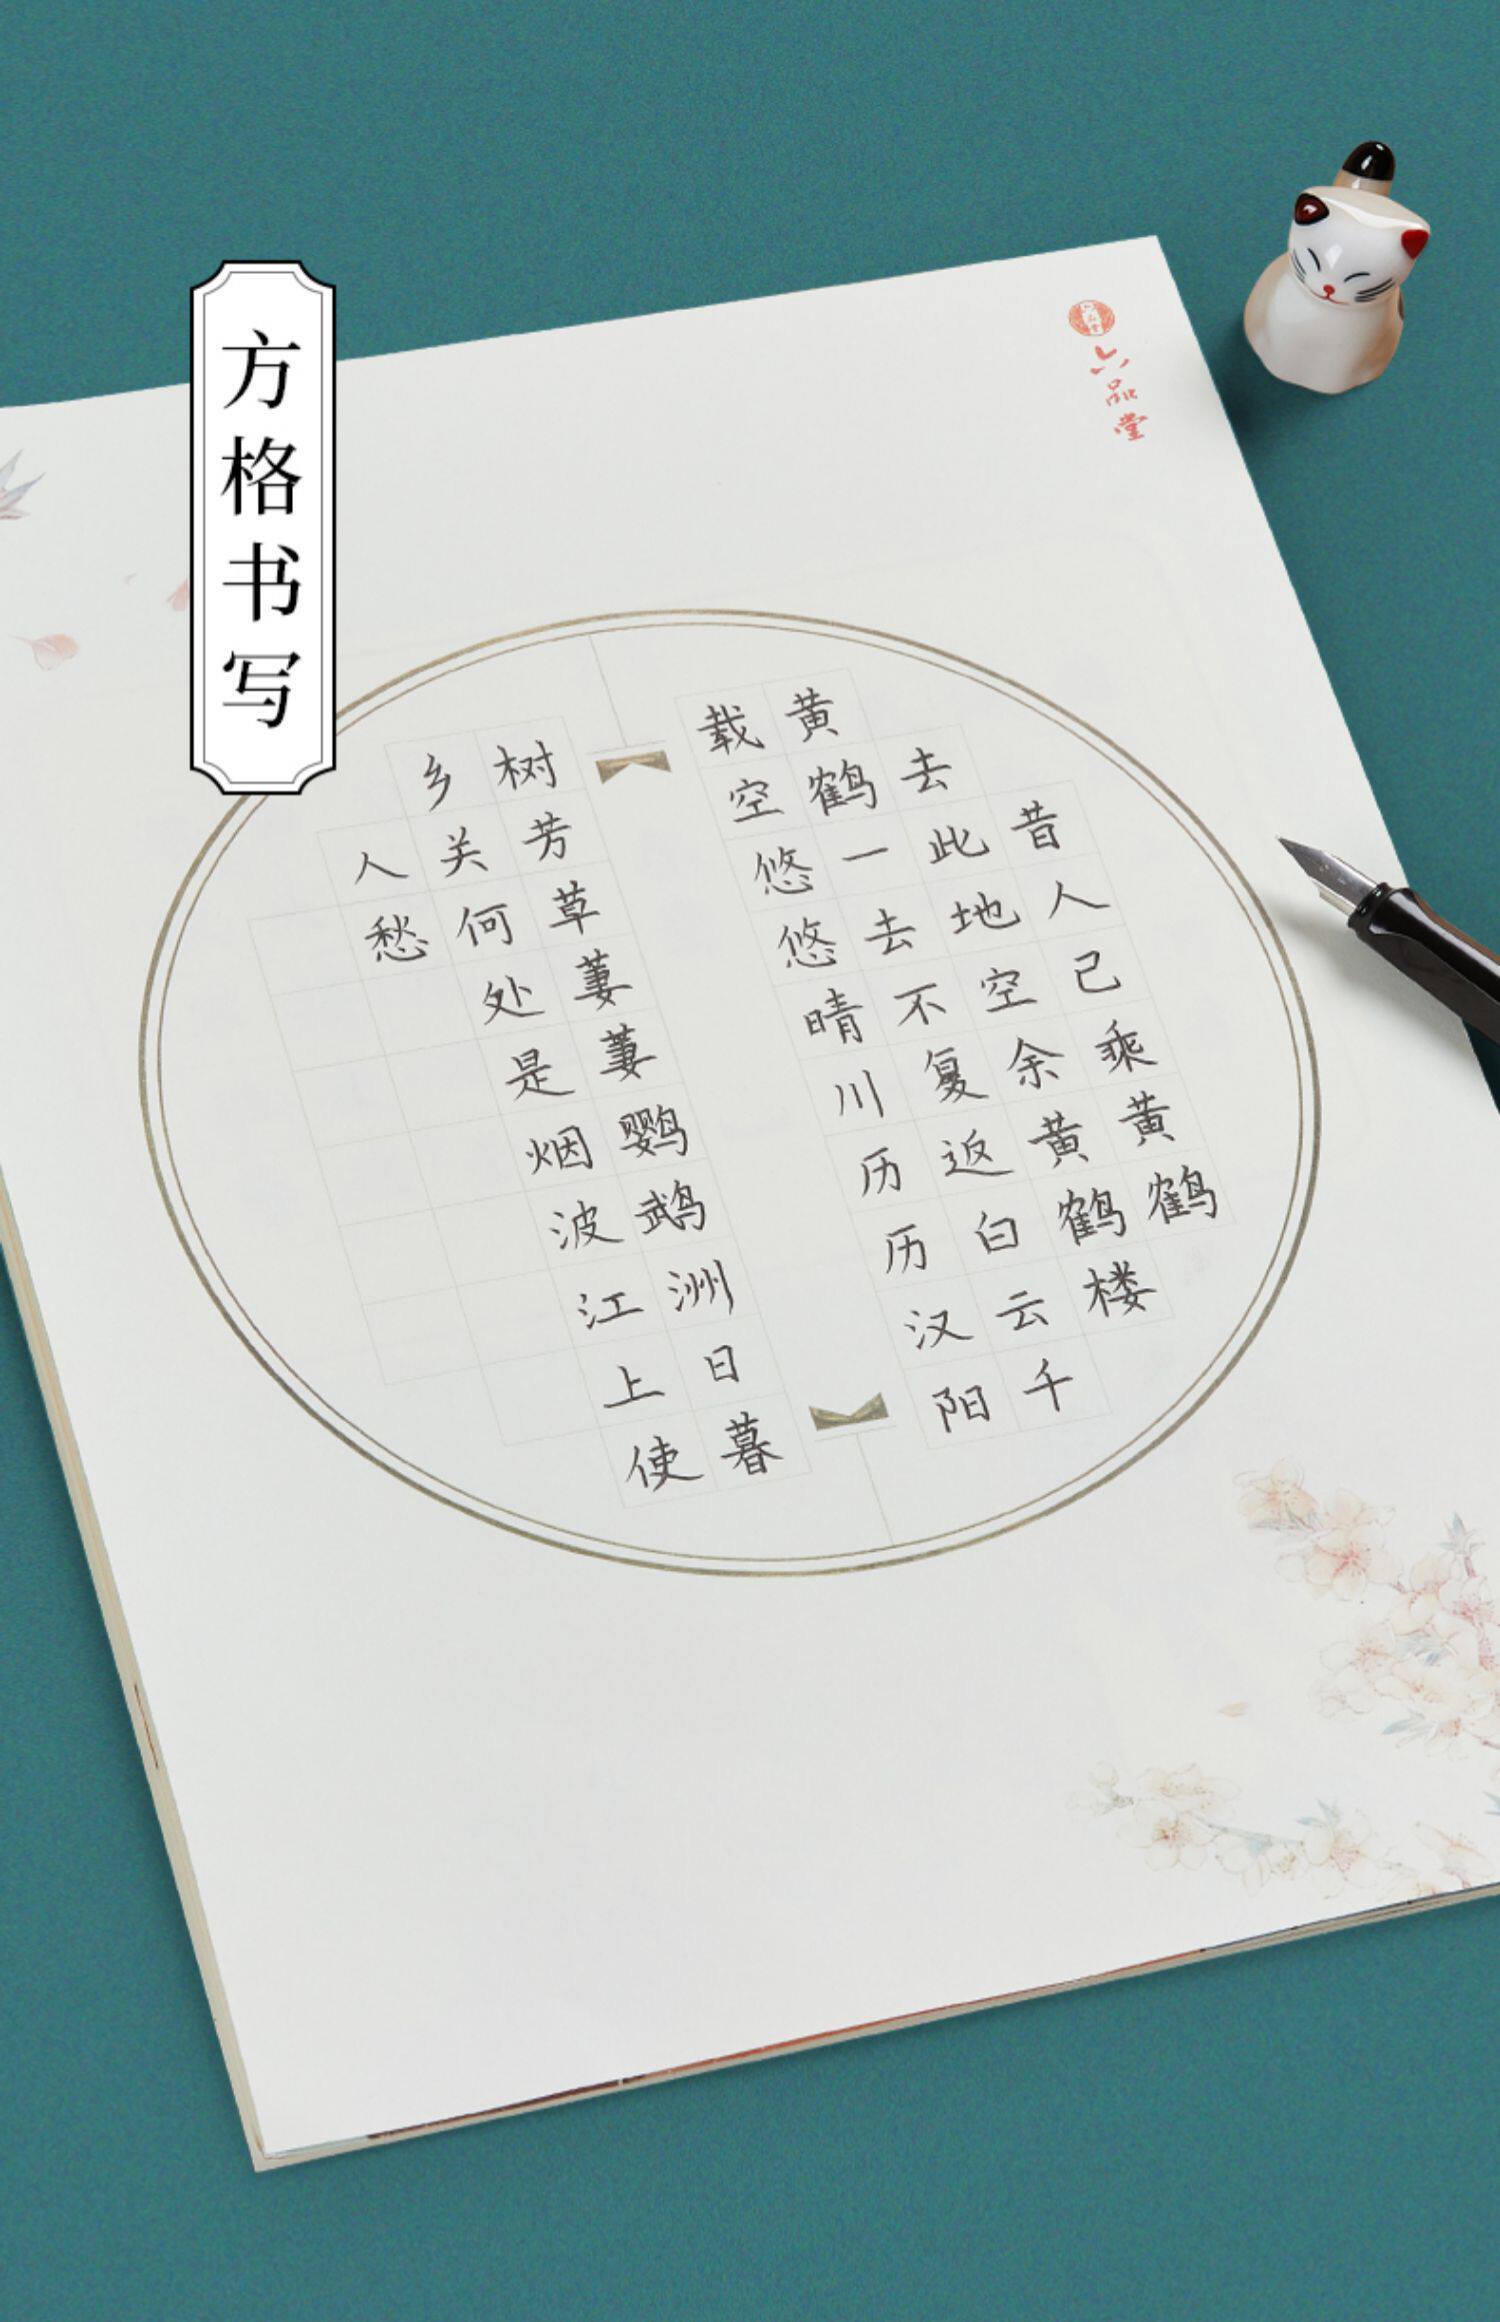 方格书写
六品堂
六品堂
昔人己乘黄鹤
去此地空余黄鹤楼
黄鹤一去不复返白云千
载空悠悠晴川历历汉阳
树芳草萋萋鹦鹉洲日暮
乡关何处是烟波江上使
人愁